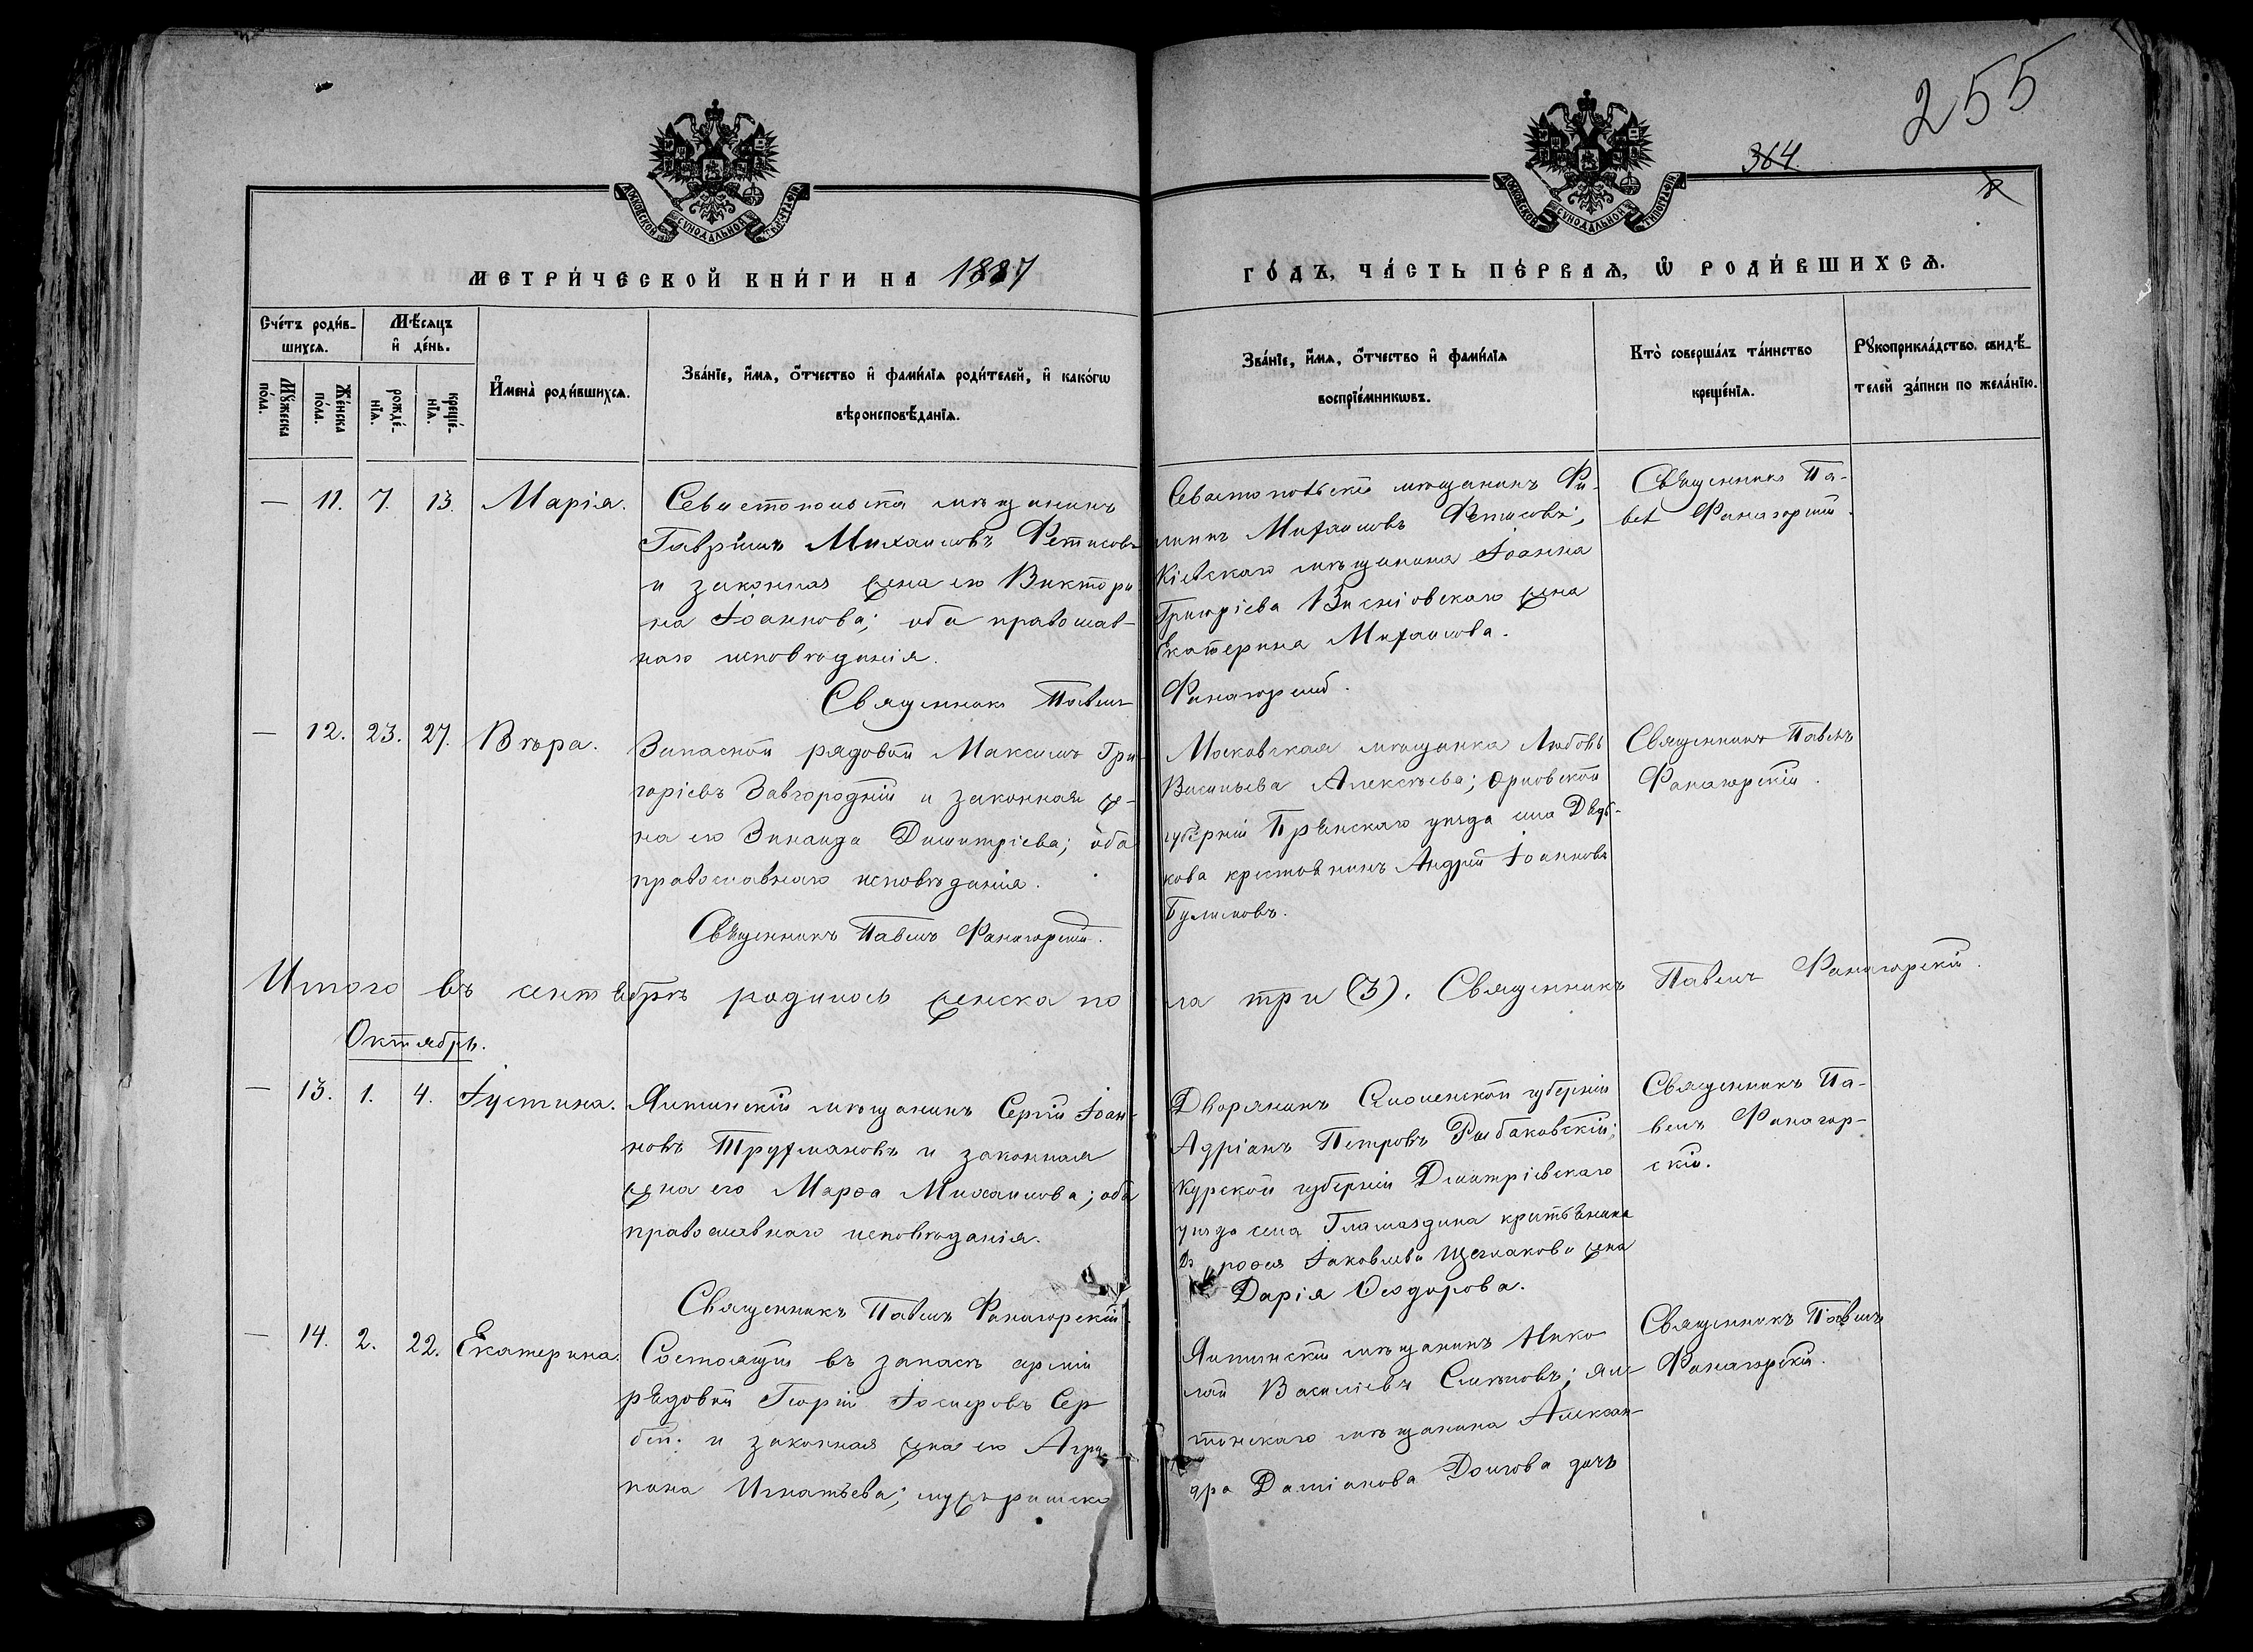 255
364.
МОСКОВСКОЙ СУНОДАЛЬНОЙ ТИПОГРАФІИ
МОСКОВСКОЙ СУНОДАЛЬНОЙ ТИПОГРАФІИ
МЕТРИ́ЧЕСКОЙ КНИ́ГИ НА 1887
ГО́ДЪ, ЧА́СТЬ ПЕ́РВАѦ, Ѽ РОДИ́ВШИХСѦ.
Сче́тъ роди́в-
шихсѧ.
Мѣ́сѧцъ
и де́нь.
Мꙋ́жеска
по́ла.
Же́нска
по́ла.
рожде́-
нїѧ.
креще́-
нїѧ.
Имена̀ роди́вшихсѧ.
Зва́нїе, и́мѧ, о́тчество и фами́лїѧ роди́телей, и како́гѡ
вѣроисповѣ́данїѧ.
Зва́нїе, и́мѧ, о́тчество и фами́лїѧ
воспрїе́мникѡвъ.
Кто̀ соверша́лъ та́инство
креще́нїѧ.
Рꙋкоприкла́дство свидѣ́-
телей за́писи по жела́нїю.
— 11. 7. 13. Марія.
Севастопольскій мѣщанинъ
Гавріилъ Михаиловъ Фетисовъ
и законная жена его Виктори
на Іоаннова; оба православ-
наго исповѣданія.
Священникъ Павелъ
Севастопольскій мѣщанинъ Фи-
липъ Михаиловъ Фетисовъ;
Кіевскаго мѣщанина Іоанна
Григоріева Висніовскаго жена
Екатерина Михаилова.
Фанагорскій.
Священникъ Па-
велъ Фанагорскій.
— 12. 23. 27. Вѣра.
Запасной рядовой Максимъ Гри-
горіевъ Завгородній и законная же-
на его Зинаида Димитріева; оба
православнаго исповѣданія.
Священникъ Павелъ Фанагорскій.
Московская мѣщанка Любовь
Васильева Алексѣева; Орловской
губерніи Брянскаго уѣзда села
кова крестьянинъ Андрей Іоанновъ
Священникъ Павелъ
Фанагорскій.
Итого въ сентябрѣ родилось женска по
ла три (3). Священникъ Павелъ Фанагорскій.
Октябрь.
— 13. 1. 4. Іустина.
Ялтинскій мѣщанинъ Сергій Іоан-
новъ Трухмановъ и законная
жена его Марѳа Михаилова; оба
православнаго исповѣданія.
Священникъ Павелъ Фанагорскій.
Дворянинъ Смоленской губерніи
Адріанъ Петровъ Рыбаковскій;
Курской губерніи Дмитріевскаго
уѣзда села Гламаздина крестьянина
Іаковлева Щеглакова жена
Дарія Ѳеодорова.
Священникъ Па-
велъ Фанагор-
скій.
— 14. 2. 22. Екатерина.
Состоящій въ запасѣ арміи
рядовой Георгій Іосифовъ Сер
бин. и законная жена его Агри
пина Игнатьева;
Ялтинскій мѣщанинъ Нико
лай Василіевъ Слѣповъ; ял-
тинскаго мѣщанина Алексан-
дра Даміанова Долгова дочь
Священникъ Павелъ
Фанагорскій.